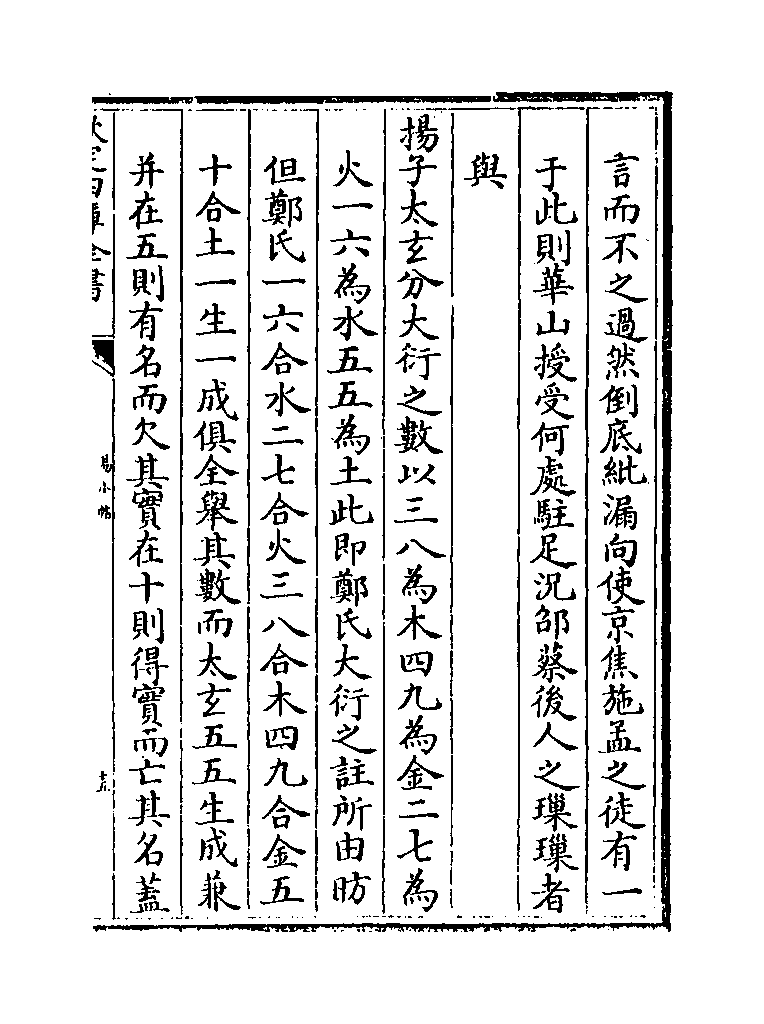 言而不之過然倒底紕漏向使京焦施孟之徒有一
于此則華山授受何處駐足況邵蔡後人之璅璅者
與
揚子太玄分大衍之數以三八為木四九為金二七為
火一六為水五五為土此即鄭氏大衍之註所由昉
但鄭氏一六合水二七合火三八合木四九合金五
十合土一生一成俱全舉其數而太玄五五生成兼
并在五則有名而欠其實在十則得實而亡其名蓋
欽定四庫全書
易小帖
十五